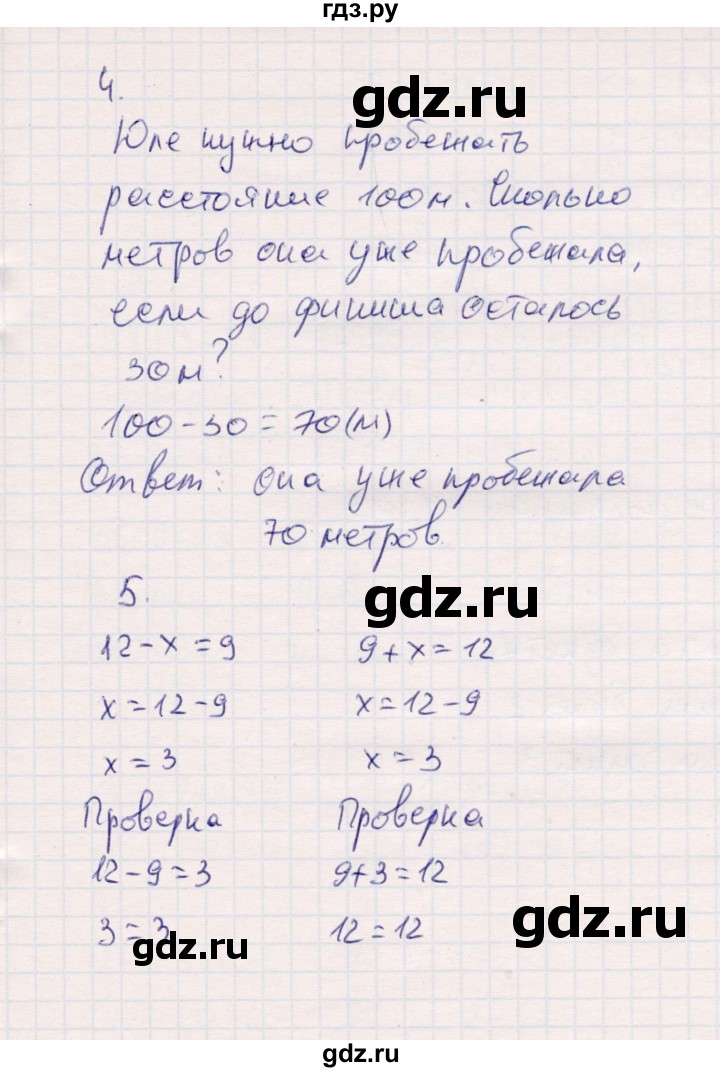 гдз.ру
4.
gdz.ru
Юле нужно пробежать
расстояние 100 м. Сколько
метров она уже пробежала,
если до финиша осталось
30 м?
100 - 30 = 70 (м)
Ответ: она уже пробежала
70 метров.
5.
gdz.ru
12 - x = 9
9 + x = 12
x = 12 - 9
x = 12 - 9
x = 3
x = 3
Проверка
Проверка
12 - 9 = 3
9 + 3 = 12
3 = 3
12 = 12
gdz.ru
gdz.ru
gdz.ru